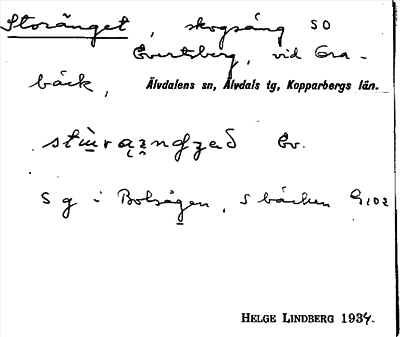 Storänget, skogsäng SO
Evertsberg, vid Gra-
bäck, Älvdalens sn, Älvdals tg, Kopparbergs län.
Ev.
S g i Bolsågen, S bäcken
HELGE LINDBERG 1934.